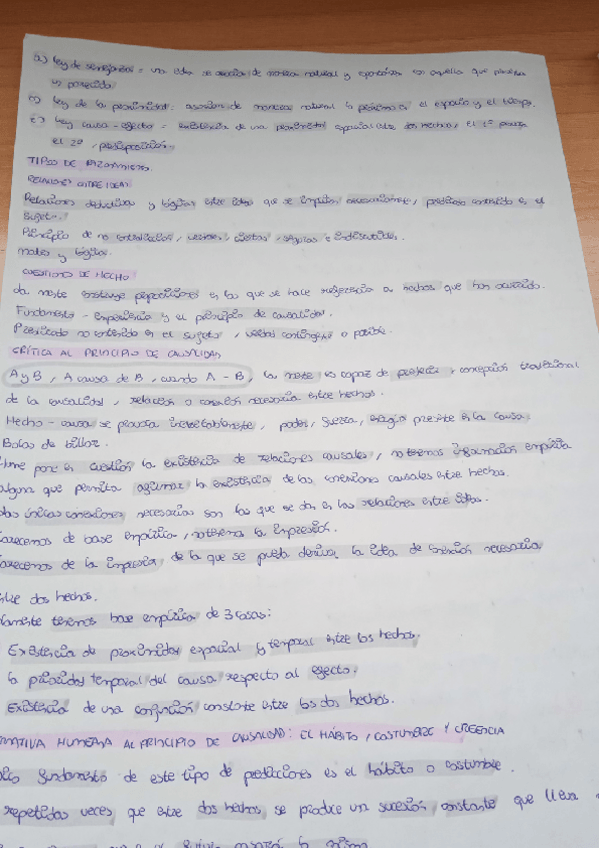 a) Ley de semejanza = una idea se asocia de manera natural y espontánea con aquella que presenta
un parecido
b) Ley de la proximidad: asocian de manera natural lo próximo en el espacio y el tiempo.
c) Ley causa-efecto = existencia de una proximidad espacial entre dos hechos, el 1º
el 2º, predisposición
TIPOS DE RAZONAMIENTO.
RELACIONES ENTRE IDEAS
Relaciones deductivas y lógicas entre ideas que se implican necesariamente, predicado contenido en el
sujeto.
Principio de no contradicción, ciertas, seguras e indiscutibles.
mates y lógica.
CUESTIONES DE HECHO
La mente construye proposiciones en las que se hace referencia a hechos que han ocurrido.
Fundamento - experiencia y el principio de causalidad.
Predicado no contenido en el sujeto, verdad contingente o posible.
CRÍTICA AL PRINCIPIO DE CAUSALIDAD
A y B, A causa de B, cuando A - B, la mente es capaz de predecir, concepción tradicional
de la causalidad, relación o conexión necesaria entre hechos.
Hecho - causa se provoca inevitablemente, poder, fuerza, energía presente en la causa.
Bolas de billar.
Hume pone en cuestión la existencia de relaciones causales, no tenemos información empírica
alguna que permita afirmar la existencia de las conexiones causales entre hechos.
Las únicas conexiones necesarias son las que se dan en las relaciones entre ideas.
Carecemos de base empírica, no tenemos la impresión.
Carecemos de la impresión, de la que se pueda derivar la idea de conexión necesaria
entre dos hechos.
Solamente tenemos base empírica de 3 cosas:
Existencia de proximidad espacial y temporal entre los hechos.
la prioridad temporal del causa respecto al efecto.
Existencia de una conjunción constante entre los dos hechos.
HUMEANA AL PRINCIPIO DE CAUSALIDAD: EL HÁBITO, COSTUMBRE Y CREENCIA
fundamento de este tipo de predicciones es el hábito o costumbre.
repetidas veces que entre dos hechos se produce una sucesión constante que lleva